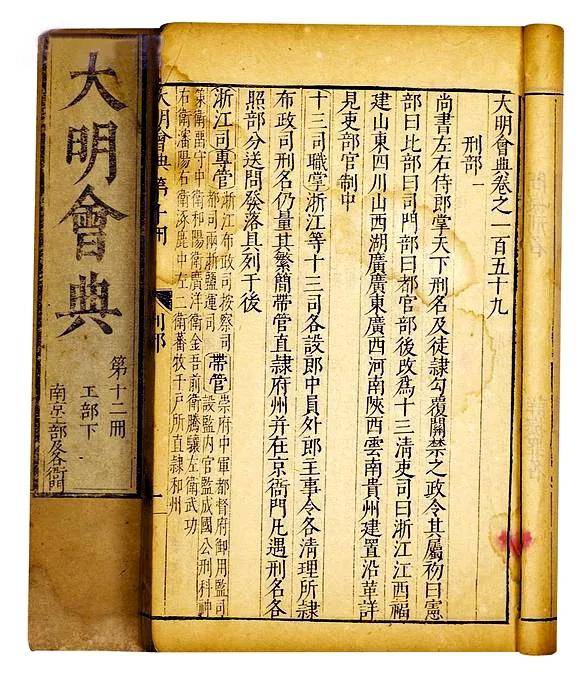 大明會典卷之一百五十九
刑部一
尚書左右侍郎掌天下刑名及徒隷勾覆關禁之政令其屬初曰憲
部曰比部曰司門部曰都官部後改為十三清吏司曰浙江江西福
建山東四川山西湖廣廣東廣西河南陝西雲南貴州建置沿革詳
見吏部官制中
十三司職掌浙江等十三司各設郎中員外郎主事令各清理所隷
布政司刑名仍量其繁簡帶管直隷府州并在京衙門凡遇刑名各
照部分送問發落具列于後
浙江司專管 浙江布政司按察司
都司兩浙鹽運司
帶管 崇府中軍都督府御用監司
設監內官監成國公刑科神
策衛留守中衛和陽衛廣洋衛金吾前衛騰讓左衛武功
右衛瀋陽右衛涿鹿中左二衛蕃牧千戶所直隷和州
大明會典第十冊
刑部
大明會典
第十二冊
工部下
南京部及各衙門